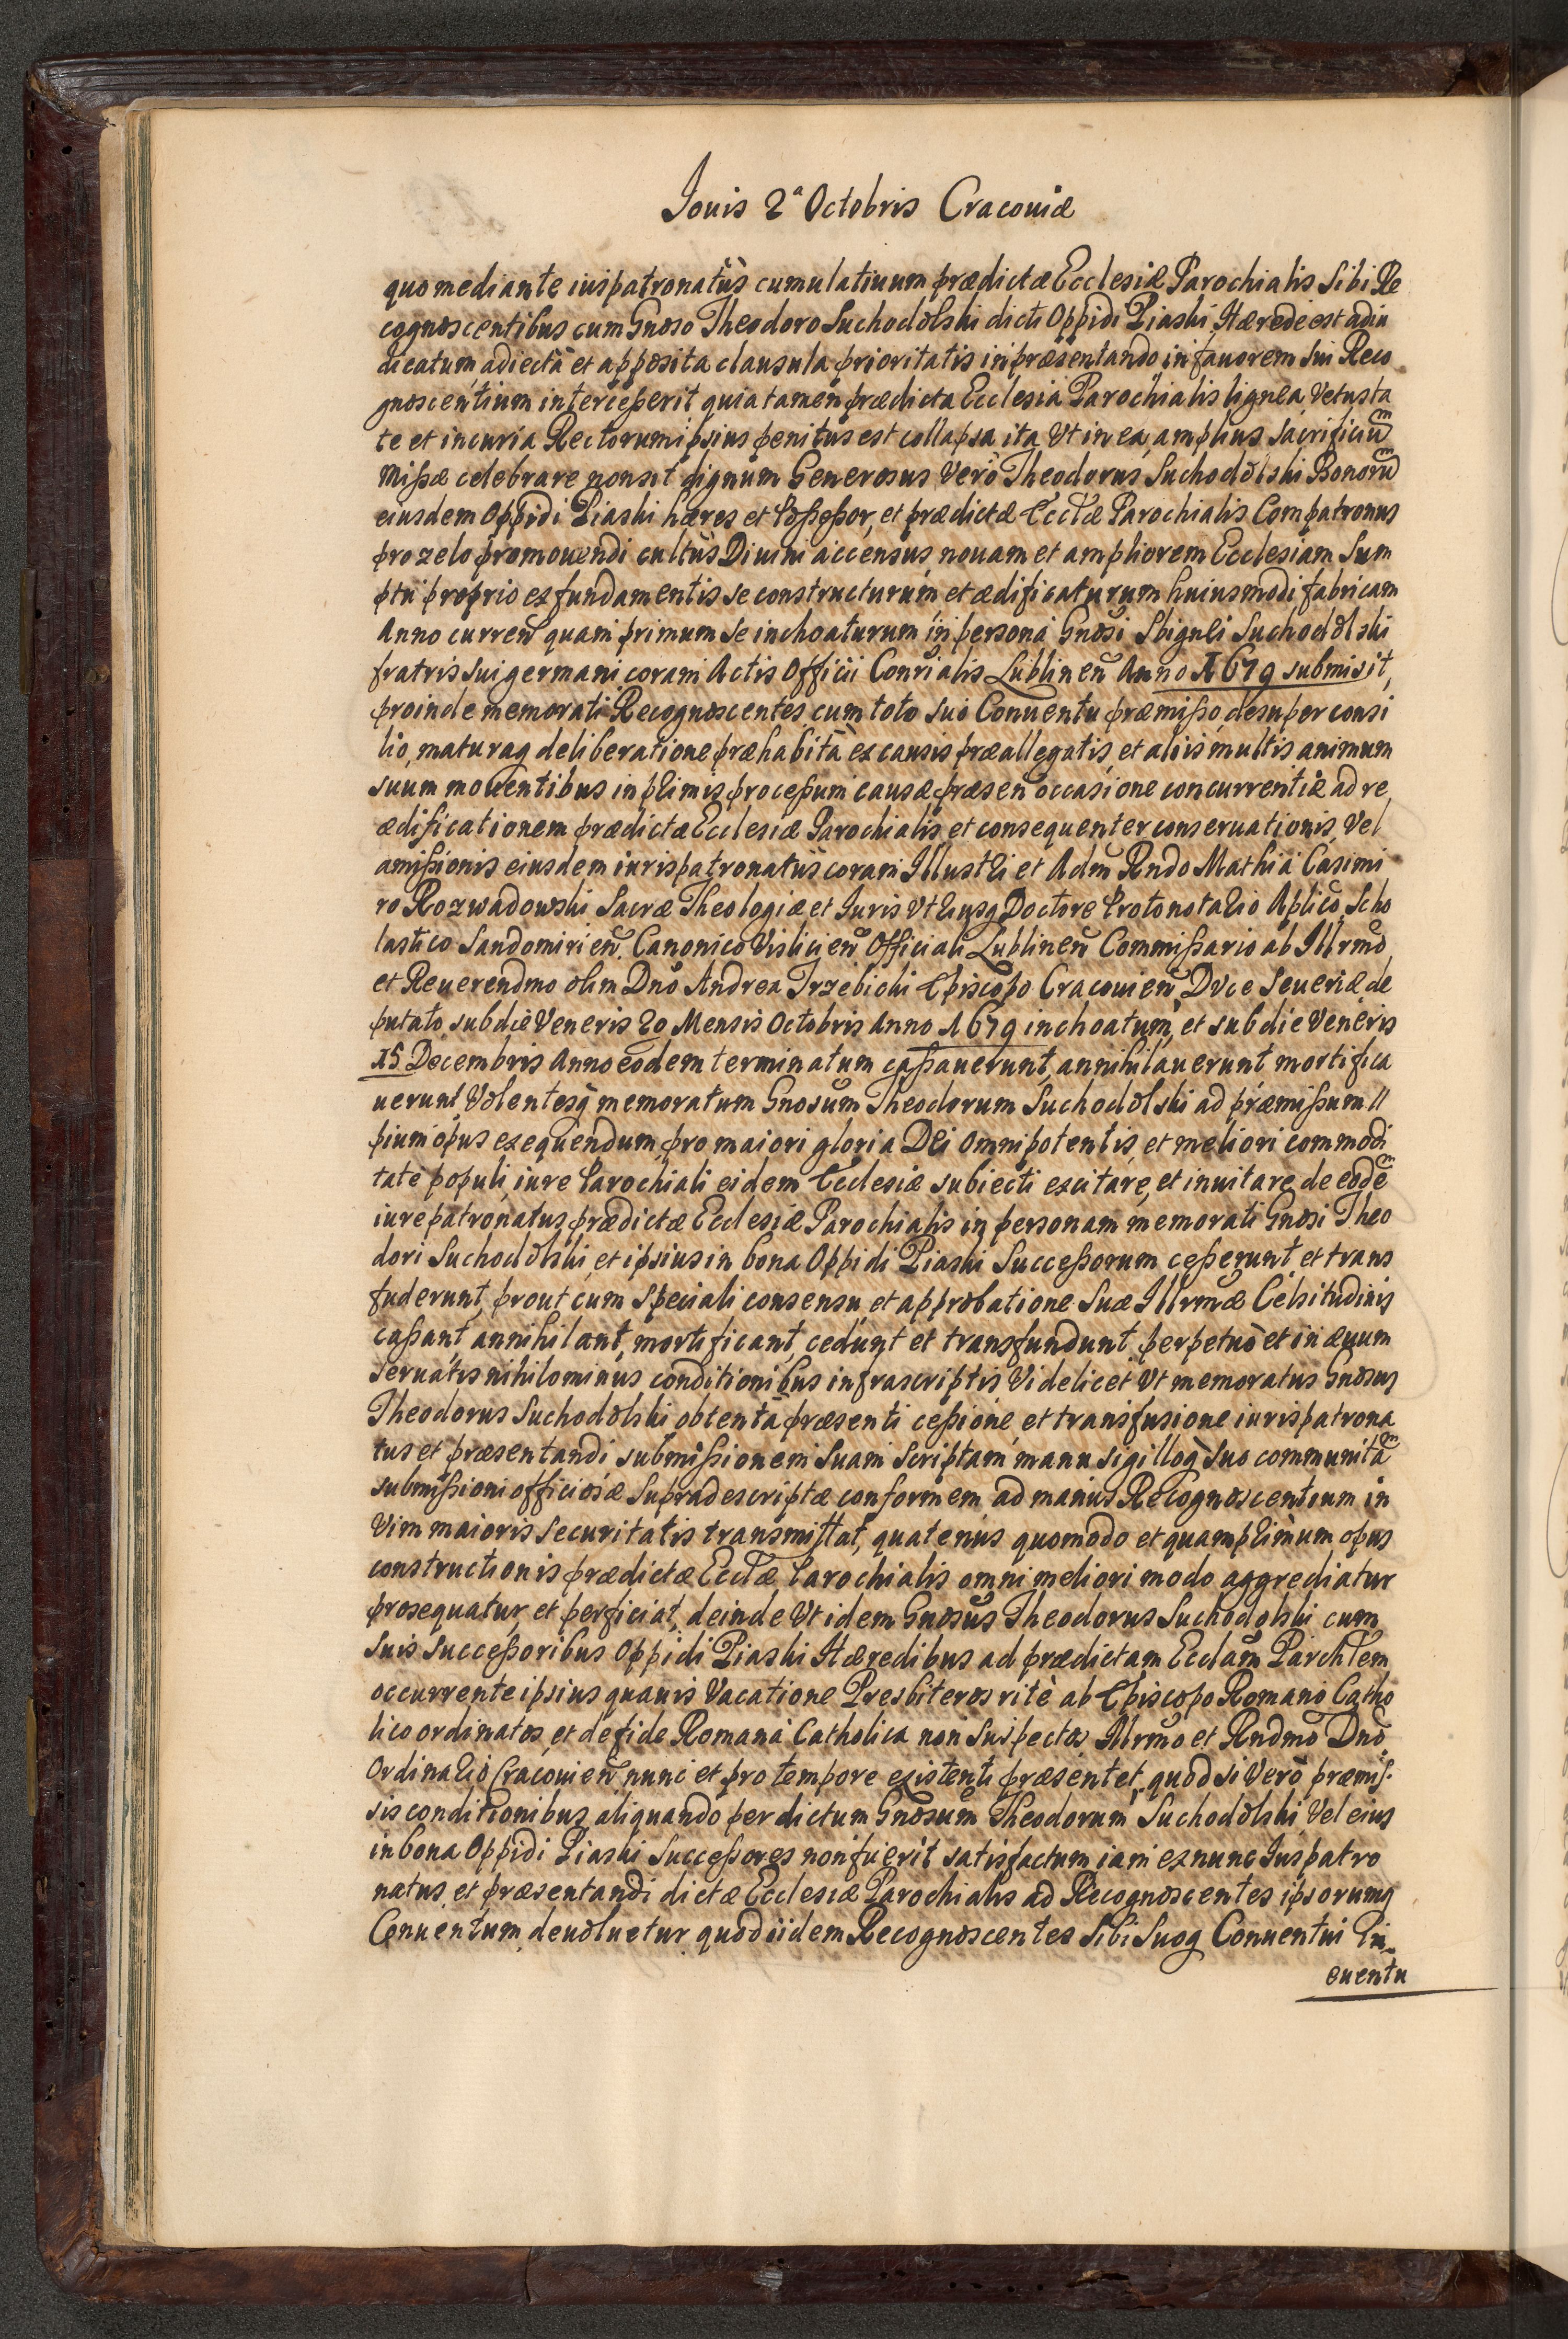 Jouis 2ª Octobris Cracouiæ
quo mediante iuspatronatus cumulatiuum prædictæ Ecclesiæ Parochialis Sibi Re
cognoscentibus cum Gnoso Theodoro Suchodolski dicti Oppidi Piaski Hærede est adiu
dicatum, adiecta et apposita clausula prioritatis in præsentando in fauorem sui Reco
gnoscentium interceßerit quia tamen prædicta Ecclesia Parochialis lignea, Vetusta
te et incuria Rectorum ipsius penitus est collapsa ita Vt in ea amplius sacrificiũ
Mißæ celebrare non sit dignum Generosus Verò Theodorus Suchodolski Bonorũ
eiusdem Oppidi Piaski hæres et Poßeßor, et prædictæ Ecclæ Parochialis Compatronus
pro zelo promouendi cultus Diuini accensus, nouam et ampliorem Ecclesiam Sum
ptu proprio ex fundamentis se constructurum et ædificaturum huiusmodi fabricam
Anno curreñ quam primum se inchoaturum in persona Gnosi Sbignei Suchodolski
fratris sui germani coram Actis Officii Consialis Lublineñ Anno 1679 submisit,
proinde memorati Recognoscentes cum toto suo Conuentu præmißo desuper consi
lio, maturaq deliberatione præhabita ex causis præallegatis, et aliis multis animum
suum mouentibus inprimis proceßum causæ præseñ occasione concurrentiæ ad re
ædificationem prædictæ Ecclesiæ Parochialis et consequenter conseruationis, Vel
amißionis eiusdem iurispatronatus coram Illustri et Adm Rndo Mathia Casimi
ro Rozwadowski Sacræ Theologiæ et Juris Vtriusq Doctore Protonotario Aplico, Scho
lastico Sandomirieñ. Canonico Visliceñ Officiali Lublineñ Commißario ab Illrmo
et Reuerendmo olim Dno Andrea Trzebicki Episcopo Cracouieñ, Duce Seueriæ de
putato, sub die Veneris 20 Mensis Octobris Anno 1679 inchoatum, et sub die Veneris
15 Decembris Anno eodem terminatum caßauerunt, annihilauerunt mortifica
uerunt Volentesq memoratum Gnosum Theodorum Suchodolski ad præmißum //
pium opus exequendum, pro maiori gloria Dei Omnipotentis, et meliori commodi
tate populi, iure Parochiali eidem Ecclesiæ subiecti excitare, et inuitare, de eodẽ
iurepatronatus prædictæ Ecclesiæ Parochialis in personam memorati Gnosi Theo
dori Suchodolski, et ipsius in bona Oppidi Piaski Succeßorum ceßerunt et trans
fuderunt, prout cum speciali consensu et approbatione Suæ Illrmæ Celsitudinis
caßant, annihilant, mortificant, cedunt et transfundunt, perpetuò et in æuum
seruatis nihilominus conditionibus infrascriptis Videlicet Vt memoratus Gnosus
Theodorus Suchodolski, obtenta præsenti ceßione et transfusione iurispatrona
tus et præsentandi submißionem suam scriptam manu sigilloq suo communitã
submißioni officiosæ Supradescriptæ conformem ad manus Recognoscentium in
Vim maioris Securitatis transmittat, quatenus quomodo et quamprimum opus
constructionis prædictæ Ecclæ Parochialis omni meliori modo aggrediatur
prosequatur, et perficiat, deinde Vt idem Gnosus Theodorus Suchodolski cum
suis Succeßoribus Oppidi Piaski Hæredibus ad prædictam Ecclam Parchlem
occurrente ipsius quauis Vacatione Presbiteros ritè ab Episcopo Romano Catho
lico ordinatos, et de fide Romana Catholica non Suspectos Illrmo et Rndmo Dno
Ordinario Cracouieñ nunc et pro tempore existenti præsentet, quod si Verò præmis
sis conditionibus aliquando per dictum Gnosum Theodorum Suchodolski, Vel eius
in bona Oppidi Piaski Succeßores non fuerit satisfactum iam ex nunc Juspatro
natus et præsentandi dictæ Ecclesiæ Parochialis ad Recognoscentes ipsorumq
Conuentum deuoluetur quod iidem Recognoscentes Sibi Suoq Conuentui In
euentu